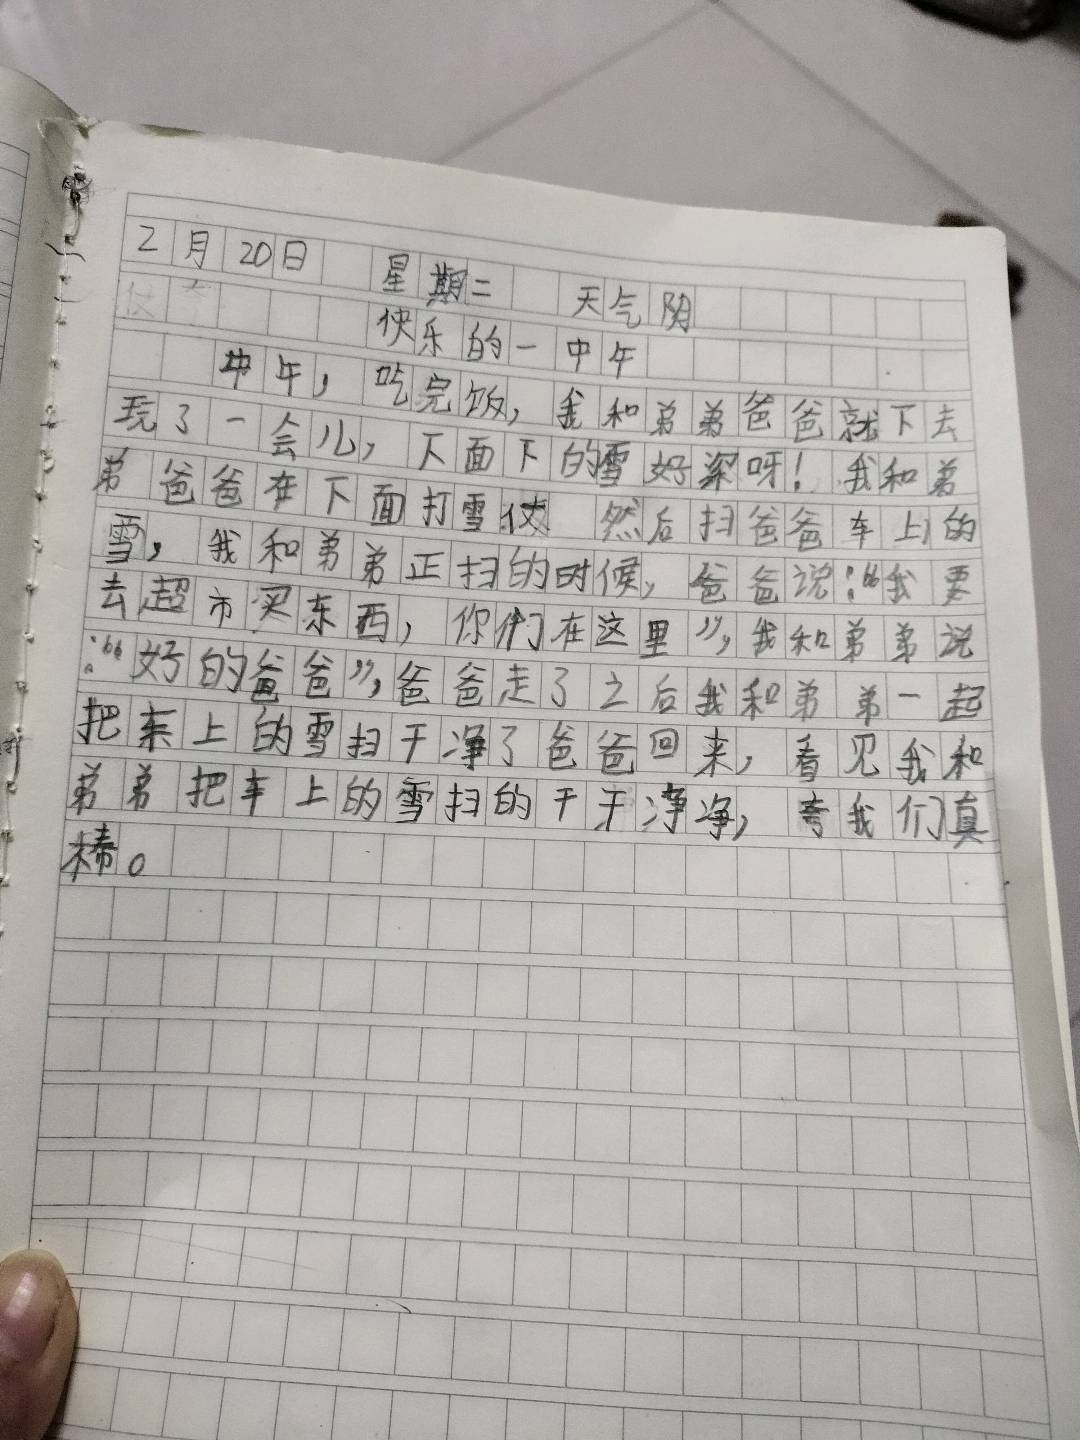 2月20日 星期二 天气阴
快乐的一中午
中午，吃完饭，我和弟弟爸爸就下去
玩了一会儿，下面下的雪好深呀！我和弟
弟爸爸在下面打雪仗 然后扫爸爸车上的
雪，我和弟弟正扫的时候，爸爸说：“我要
去超市买东西，你们在这里”，我和弟弟说
：“好的爸爸”，爸爸走了之后我和弟弟一起
把车上的雪扫干净了爸爸回来，看见我和
弟弟把车上的雪扫的干干净净，夸我们真
棒。